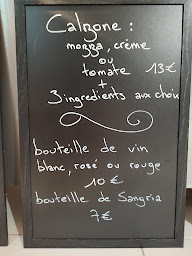 Calzone :
mozza, crème
ou
tomate 13€
+
3 ingredients aux choix
bouteille de vin
blanc, rosé ou rouge
10 €
bouteille de Sangria
7€